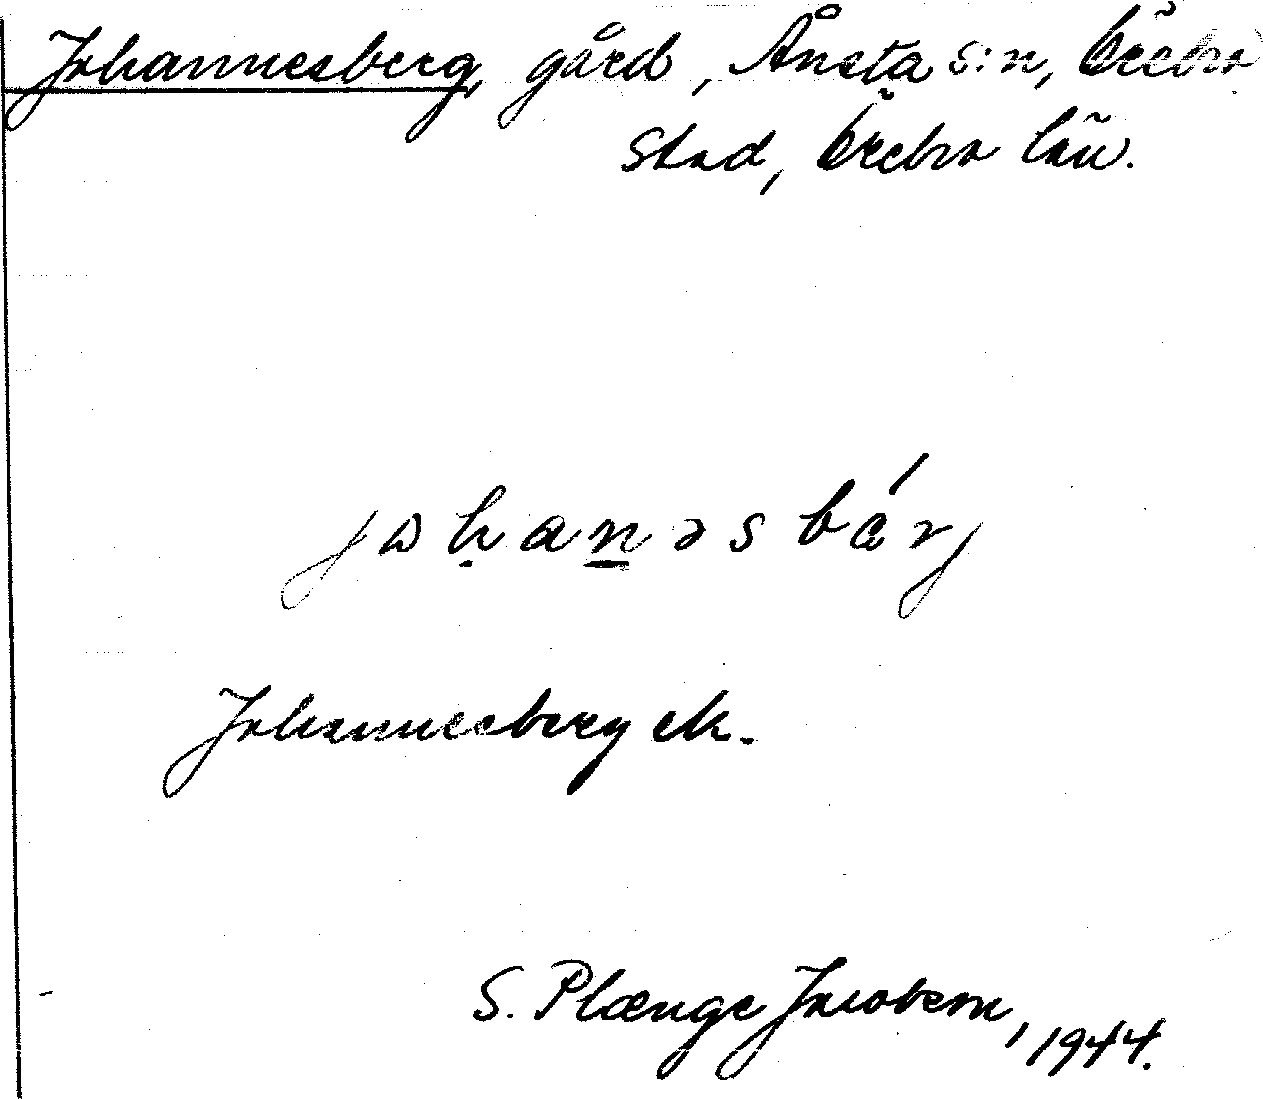 Johannesberg, gård, Ånsta s:n, Örebro
stad, Örebro län.
johanəsbǽrj
Johannesberg ek.
S. Plænge Jacobson, 1944.